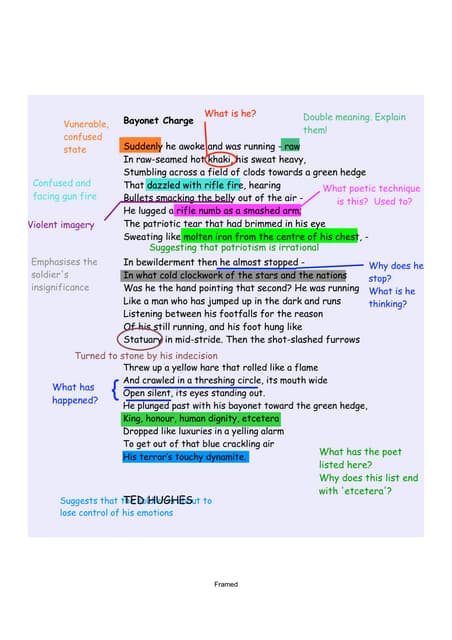 What is he?
Bayonet Charge
Double meaning. Explain
them!
Vunerable,
confused
state
Suddenly he awoke and was running - raw
In raw-seamed hot khaki, his sweat heavy,
Stumbling across a field of clods towards a green hedge
That dazzled with rifle fire, hearing
Confused and
facing gun fire
Bullets smacking the belly out of the air -
He lugged a rifle numb as a smashed arm;
What poetic technique
is this? Used to?
Violent imagery
The patriotic tear that had brimmed in his eye
Sweating like molten iron from the centre of his chest, -
Suggesting that patriotism is irrational
In bewilderment then he almost stopped -
In what cold clockwork of the stars and the nations
Emphasises the
soldier's
insignificance
Why does he
stop?
What is he
thinking?
Was he the hand pointing that second? He was running
Like a man who has jumped up in the dark and runs
Listening between his footfalls for the reason
Of his still running, and his foot hung like
Statuary in mid-stride. Then the shot-slashed furrows
Turned to stone by his indecision
Threw up a yellow hare that rolled like a flame
And crawled in a threshing circle, its mouth wide
Open silent, its eyes standing out.
What has
happened?
He plunged past with his bayonet toward the green hedge,
King, honour, human dignity, etcetera
Dropped like luxuries in a yelling alarm
To get out of that blue crackling air
His terror's touchy dynamite.
What has the poet
listed here?
Why does this list end
with 'etcetera'?
TED HUGHES
Suggests that the to
lose control of his emotions
Framed